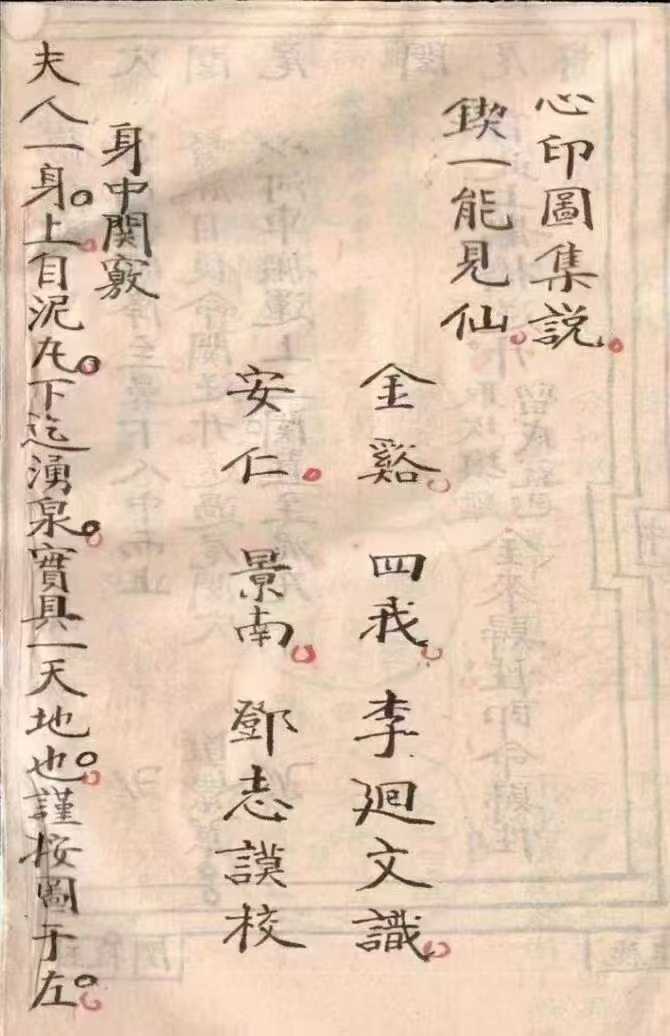 心印圖集說
鍥一能見仙
金谿 四我 李廻文識
安仁 景南 鄧志謨校
身中関竅
夫人一身。上自泥丸。下迄湧泉。實具一天地也。謹按圖于左。